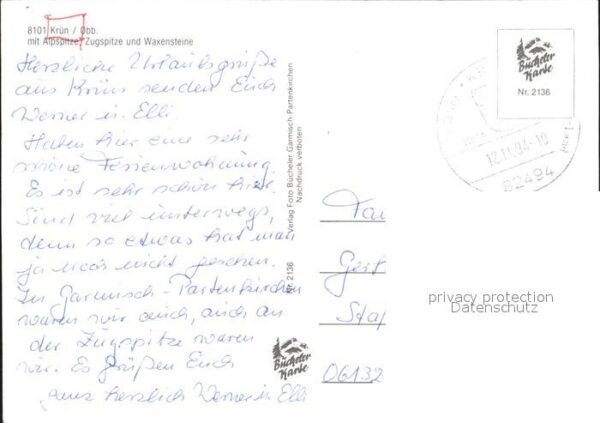 8101 Krün / Obb.
mit Alpspitze, Zugspitze und Waxensteine
Herzliche Urlaubsgrüße
aus Krün senden Euch
Werner u. Elli.
Haben hier eine sehr
schöne Ferienwohnung.
Es ist sehr schön hier.
Sind viel unterwegs,
denn so etwas hat man
ja noch nicht gesehen.
In Garmisch-Partenkirchen
waren wir auch, auch an
der Zugspitze waren
wir. Es grüßen Euch
ganz herzlich Werner u. Elli
Verlag Foto Bücheler Garmisch-Partenkirchen
Nachdruck verboten
Nr. 2136
Bücheler
Karte
Bücheler
Karte
Nr. 2136
12.11.94-10
82494
Fa
Ger
Sta
06132
privacy protection
Datenschutz